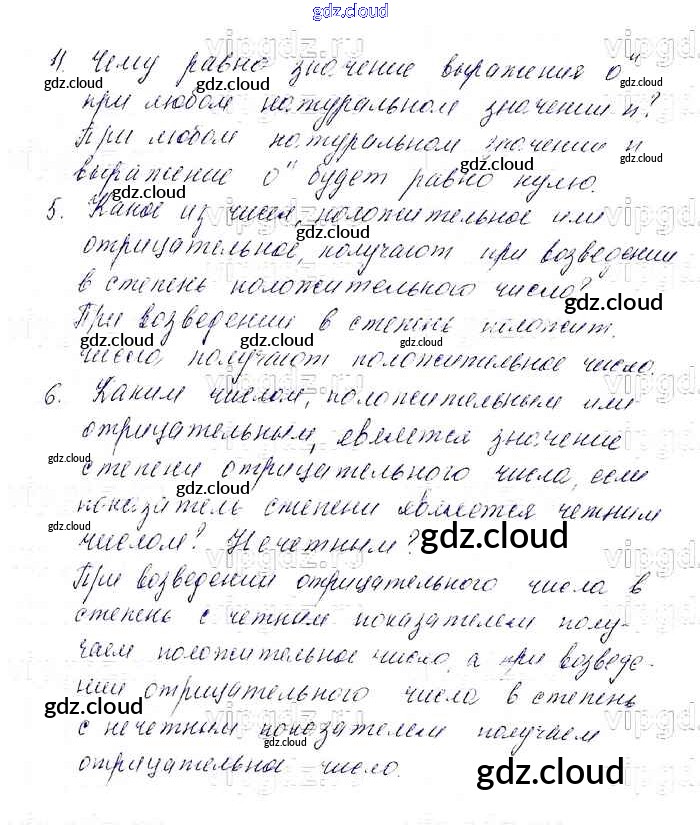 gdz.cloud
4. Чему равно значение выражения 0ⁿ
при любом натуральном значении n?
При любом натуральном значении n
выражение 0ⁿ будет равно нулю.
5. Какое из чисел, положительное или
отрицательное, получают при возведении
в степень положительного числа?
При возведении в степень положит.
числа, получают положительное число.
6. Каким числом, положительным или
отрицательным, является значение
степени отрицательного числа, если
показатель степени является четным
числом? Нечетным?
При возведении отрицательного числа в
степень с четным показателем полу-
чаем положительное число, а при возведе-
нии отрицательного числа в степень
с нечетным показателем получаем
отрицательное число.